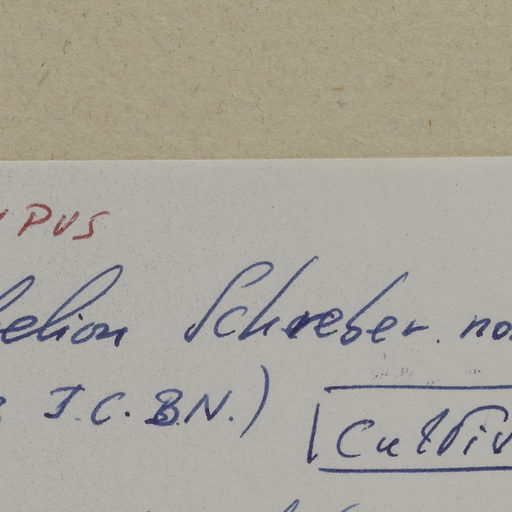 YPUS
belion Schreber non
I.C.B.N.) Cultiv